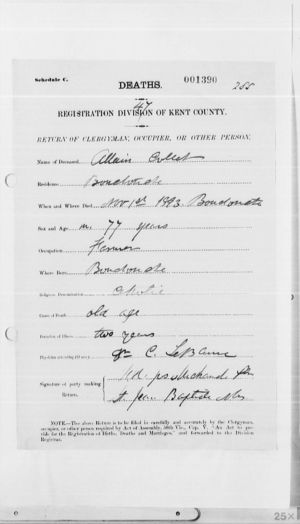 Schedule C.
DEATHS.
001390
255
47
REGISTRATION DIVISION OF KENT COUNTY.
RETURN OF CLERGYMAN, OCCUPIER, OR OTHER PERSON.
Name of Deceased, Allain Collet
Residence,
When and Where Died, Nov 1st 1893
Sex and Age, m. 77 years
Occupation, Farmer
Where Born,
Religious Denomination,
Cause of Death, old age
Duration of Illness, two years
Physician attending (if any) C. LeBlanc
Signature of party making
Return. St Jean Baptiste
NOTE.—The above Return is to be filled in carefully and accurately by the Clergyman,
occupier, or other person required by Act of Assembly, 50th Vic., Cap. V. "An Act to pro-
vide for the Registration of Births, Deaths and Marriages," and forwarded to the Division
Registrar.
25X